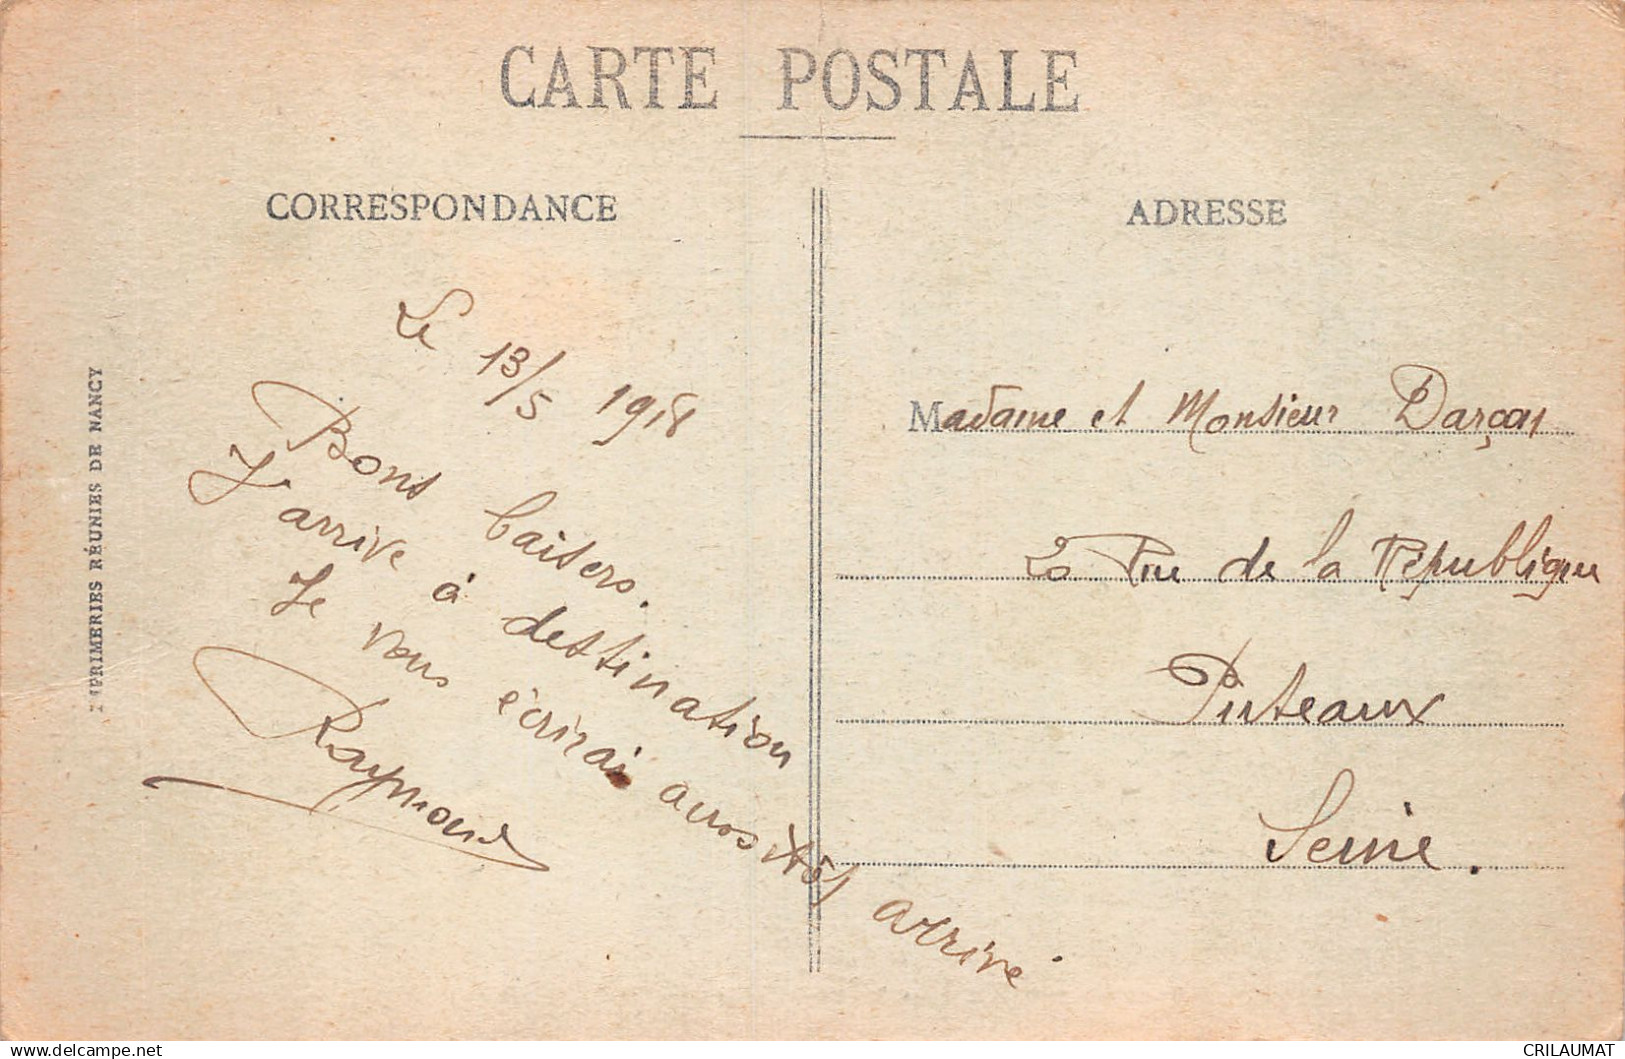 CARTE POSTALE
CORRESPONDANCE
Le 13/5 1918
Bons baisers.
J'arrive à destination
Je vous écrirai aussitôt arrivé.
Raymond
ADRESSE
Madame et Monsieur Darçon
20 Rue de la République
Puteaux
Seine.
IMPRIMERIES RÉUNIES DE NANCY
https://www.delcampe.net
CRILAUMAT